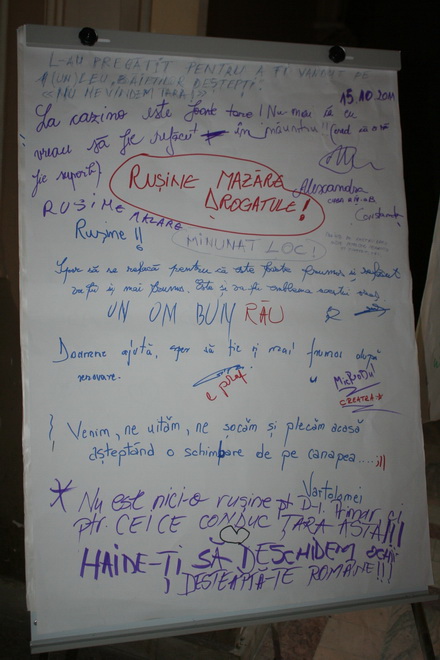 L-AU PREGĂTIT PENTRU A FI VÂNDUT PE
1(UN) LEU, BĂIEȚILOR DEȘTEPȚI.
«NU NE VINDEM ȚARA!»
15.10.2011
La cazino este foarte tare! Nu mai că eu
vreau să fie refăcut în năuntru!! Cred că o să
fie superb!
RUȘINE MAZĂRE
DROGATULE!
Alexandra
Constanța
RUSINE MAZARE
Rușine !!
MINUNAT LOC!
Sper să se refacă pentru că este foarte frumos și refăcut
va fi și mai frumos.
UN OM BUN RĂU
Doamne ajută, sper să fie și mai frumos după
renovare.
MICRODU'
CREATZA
Venim, ne uităm, ne șocăm și plecăm acasă
așteptând o schimbare de pe canapea....;))
Vartolomei
* Nu este nici-o rușine pt D-l.
ptr. CEI CE CONDUC ȚARA ASTA!!!
HAIDE-ȚI SĂ DESCHIDEM OCHII
DEȘTEAPTĂ-TE ROMÂNE!!!